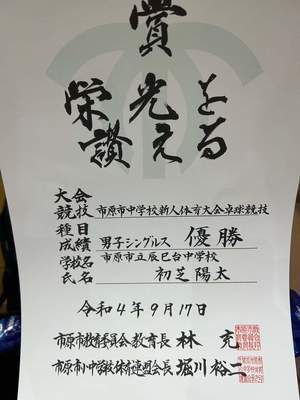 賞
栄光を
讃える
大会
競技 市原市中学校新人体育大会卓球競技
種目
成績 男子シングルス 優勝
学校名 市原市立辰巳台中学校
氏名 初芝陽太
令和4年9月17日
市原市教育委員会教育長 林 充
市原市小中学校体育連盟会長 堀川裕二